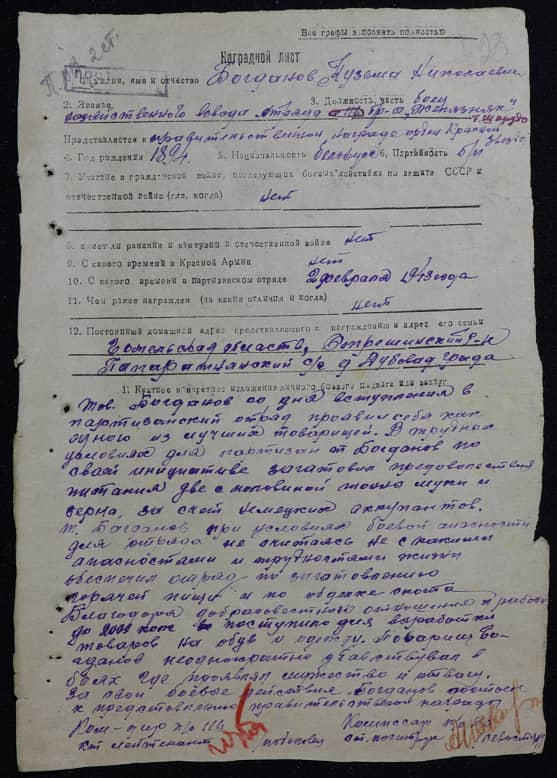 Все графы заполнять полностью
23
Наградной лист
1. Фамилия, имя и отчество Богданов Кузьма Николаевич
2. Звание 3. Должность, часть боец
хозяйственного взвода отряда
Представляется к правительственной награде орден Красной Звезды
4. Год рождения 1894 5. Национальность белорусс 6. Партийность б/п
7. Участие в гражданской войне, последующих боевых действиях по защите СССР и
отечественной войне (где, когда) нет
8. имеет ли ранения и контузии в отечественной войне нет
9. С какого времени в Красной Армии нет
10. С какого времени в Партизанском отряде 2 февраля 1943 года
11. Чем ранее награжден (за какие отличия и когда) нет
12. Постоянный домашний адрес представляемого к награждению и адрес его семьи
Гомельская область,
с/с д Дубовая града
1. Краткое и конкретное изложение личного боевого подвига или заслуг
Тов. Богданов со дня вступления в
партизанский отряд проявил себя как
одного из лучших товарищей. В трудных
условиях для партизан т Богданов по
своей инициативе заготовил продовольствия
питания две с половиной тонны муки и
зерна, за счет немецких аккупантов.
т. Богданов при условиях боевой опасности
для отряда не считаясь не с какими
опасностами и трудностами жизни
обеспечил отряд по заготовлению
горячей пищи и по
Благодора добрасовестного отношения к работе
до 2000 кож поступило для выработки
товаров на обув и одежу. Товарищ Бо-
гданов неоднократно учавствувал в
боях где проявлял мужество и отвагу.
За свои боевые действия Богданов достоен
к представлению правительственной награды
Ком-дир п/о
Комиссар
ст лейтенант
ст. политрук